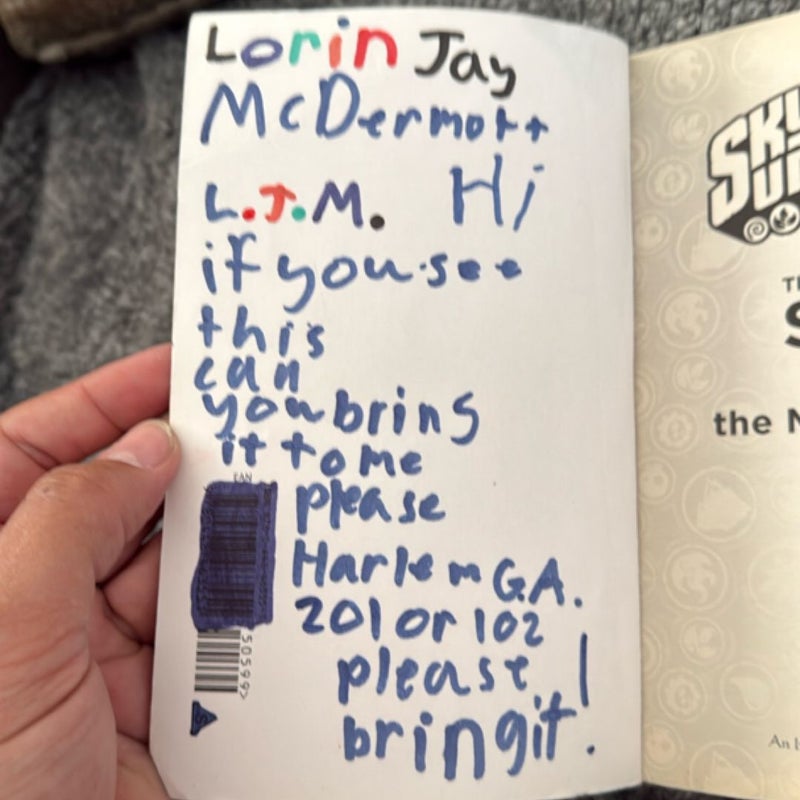 Lorin Jay
McDermott
L.J.M. Hi
if you see
this
can
you bring
it to me
EAN
please
Harlem GA.
201 or 102
50599>
please
bring it.
SKY
the
An